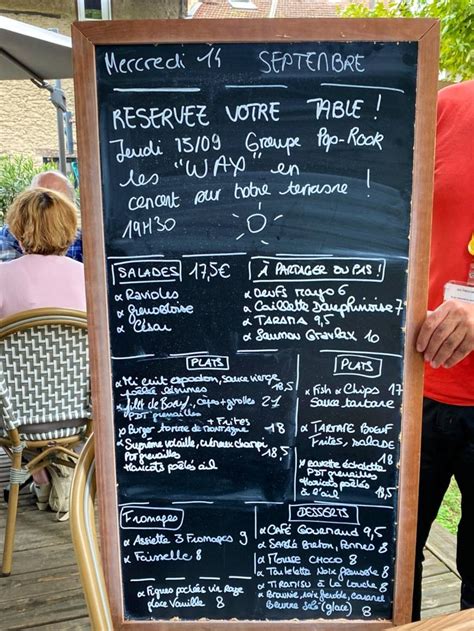 Mercredi 14 SEPTEMBRE
RESERVEZ VOTRE TABLE !
Jeudi 15/09 Groupe Pop-Rock
les "WAX" en
concert sur notre terrasse !
19H30
SALADES 17,5€
Ravioles
Grenobloise
César
À PARTAGER OU PAS !
Oeufs mayo 6
Caillette Dauphinoise 7
TARAMA 9,5
Saumon Gravlax 10
PLATS
Mi cuit espadon, sauce vierge
18,5
+ girolles 21
PDT grenailles
+ Frites
Burger tomme de montagne 18
Suprême volaille, crémeux champi
PDT grenailles 18,5
Haricots poêlés ail
PLATS
Fish & Chips 17
Sauce tartare
TARTARE BOEUF
Frites, salade 18
Bavette échalotte
PDT grenailles
Haricots poêlés
à l'ail 18,5
FROMAGES
Assiette 3 Fromages 9
Faisselle 8
Figues pochées vin rouge
glace Vanille 8
DESSERTS
CAFÉ Gourmand 9,5
Sablé Breton, Pommes 8
Mousse CHOCO 8
Tartelette Noix 8
TIRAMISU À LA Louche 8
Brownie, noix
(glace) 8